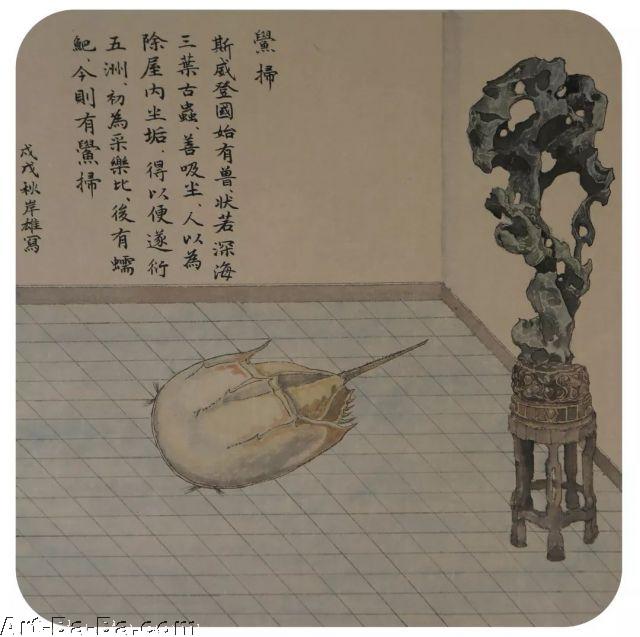 鱟掃
斯威登國始有兽、状若深海
三葉古蟲、善吸尘、人以為
除屋内尘垢、得以便遂衍
五洲、初為采樂比、後有蠕
鮑、今則有鱟掃
戊戌秋岸雄寫
Art-Ba-Ba.com